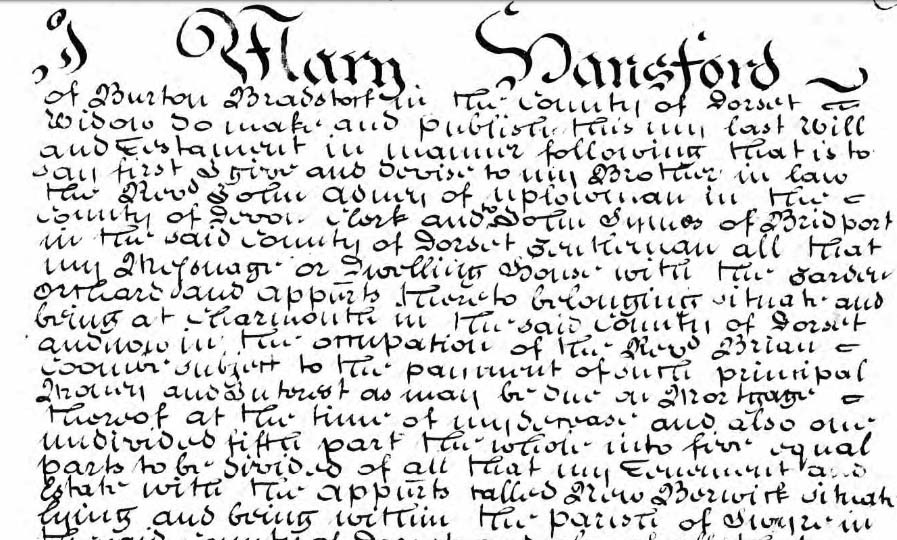 I Mary Hansford
of Burton Bradstock in the County of Dorset
Widow do make and publish this my last Will
and Testament in manner following that is to
say first I give and devise to my Brother in law
the Revd John Admey of Uplowman in the
County of Devon Clerk and John Symes of Bridport
in the said County of Dorset Gentleman all that
my Messuage or Dwelling House with the Garden
Orchard and appurts thereto belonging situate and
being at Charmouth in the said County of Dorset
and now in the occupation of the Revd Brian
Coombe subject to the payment of such principal
Money and Interest as may be due on Mortgage
thereof at the time of my decease and also one
undivided fifth part the whole into five equal
parts to be divided of all that my Tenement and
Estate with the appurts called New Berwick situate
lying and being within the parish of Swyre in
the said County of Dorset and